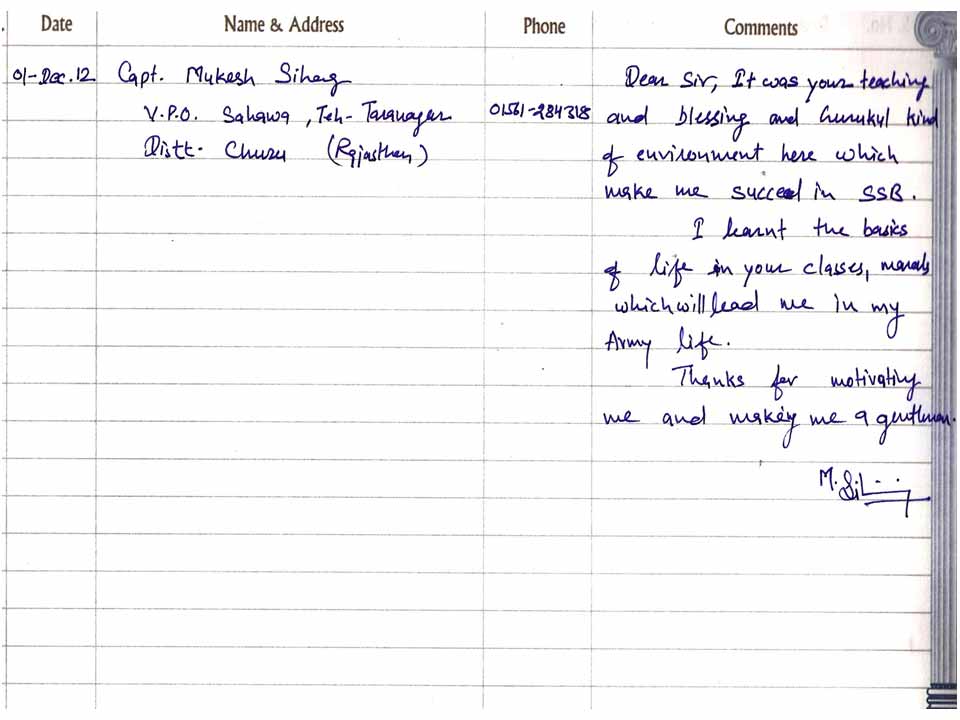 Date Name & Address Phone Comments
01-Dec.12 Capt. Mukesh Sihag
V.P.O. Sahawa, Teh- Taranagar
Distt- Churu (Rajasthan)
01561-284318
Dear Sir, It was your teaching
and blessing and Gurukul kind
of environment here which
make me succeed in SSB.
I learnt the basics
of life in your classes, morals
which will lead me in my
Army life.
Thanks for motivating
me and making me a gentleman.
M.